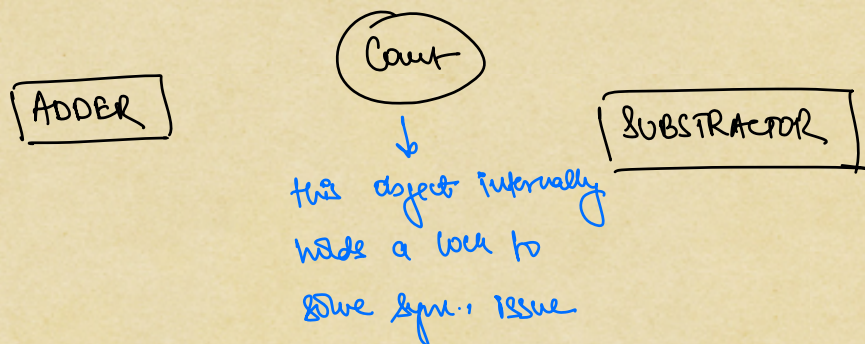 Count
ADDER
SUBSTRACTOR
this object internally
holds a lock to
solve sync.. issue